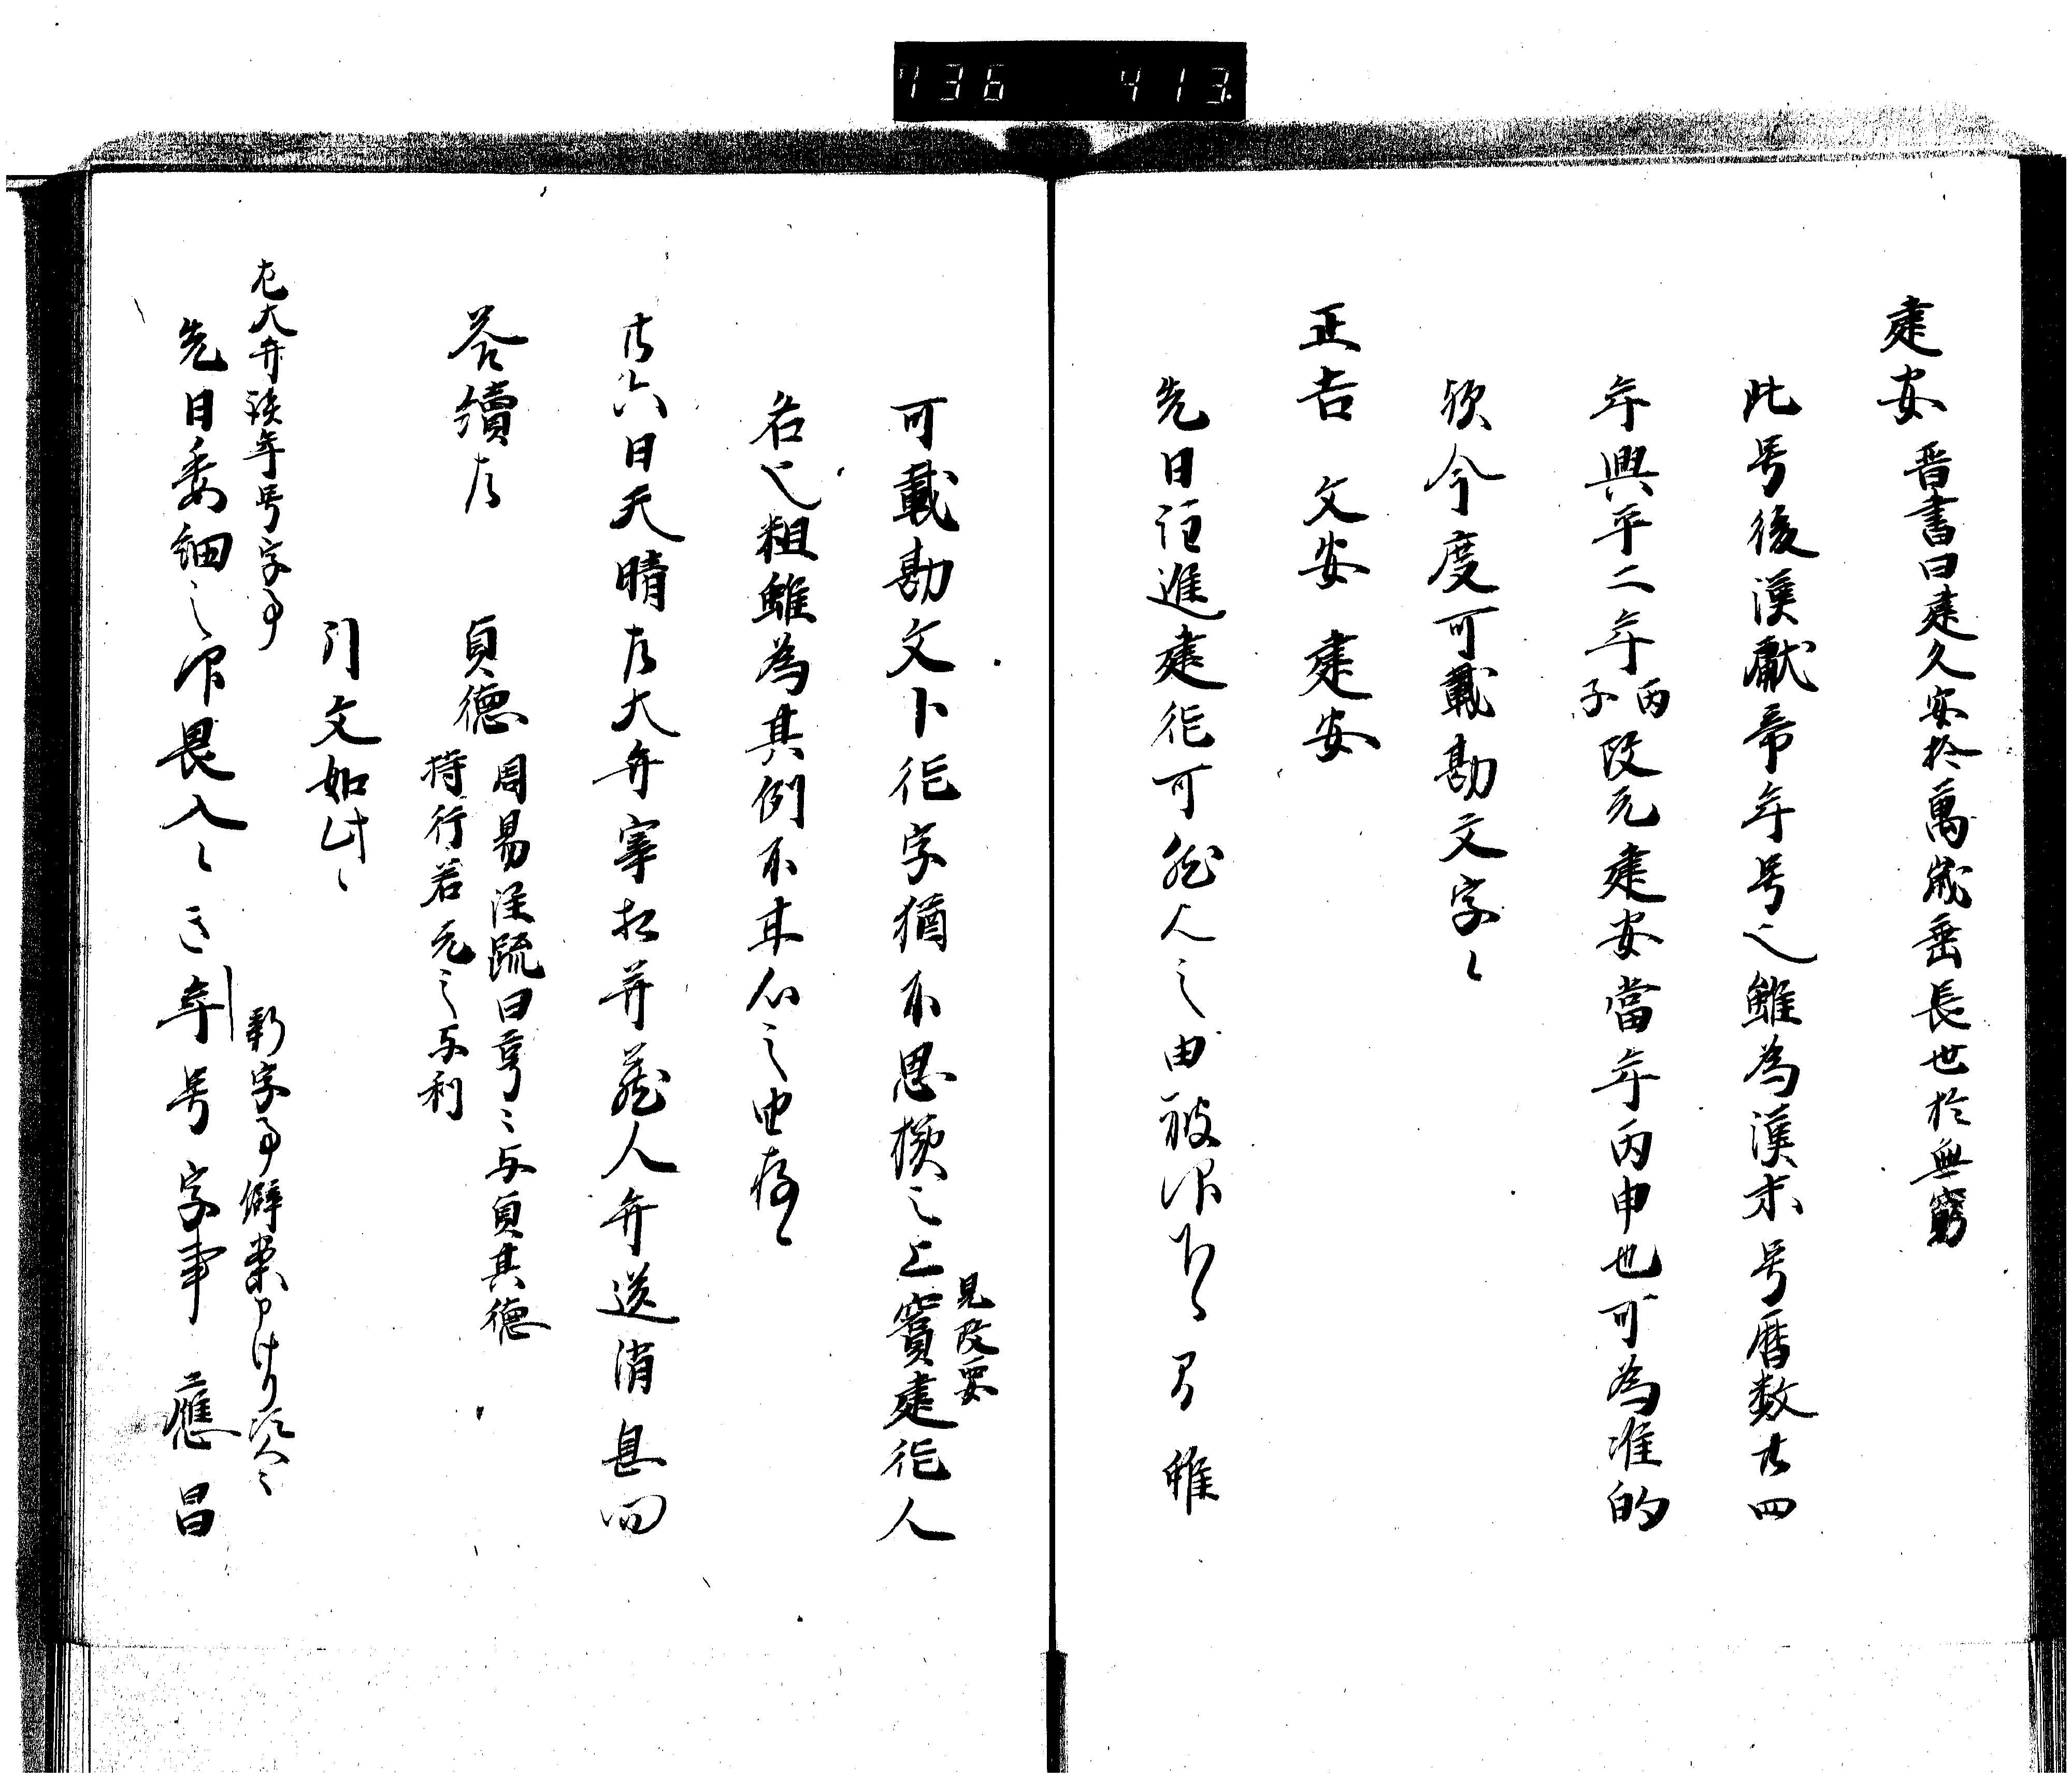 736 413
建安 晋書曰建久安於萬歳垂長世於無窮
此号後漢獻帝年号也雖為漢末号暦数廿四
年興平二年丙子改元建安當年丙申也可為准的
欤今度可載勘文字〻
正吉 文安 建安
先日注進建征可然人之由被仰下了
可載勘文卜征字猶不思様之上竇建征人
見改要
名也粗雖為其例不甘心之由存〻
廿六日天晴左大弁宰相并蔵人弁送消息
答續左
貞徳 周易注疏曰亨〻与貞其徳
特行若元之与利
引文如此〻
左大弁談年号字事
先日委細之仰畏入〻
年号字事 應昌
新字事僻案